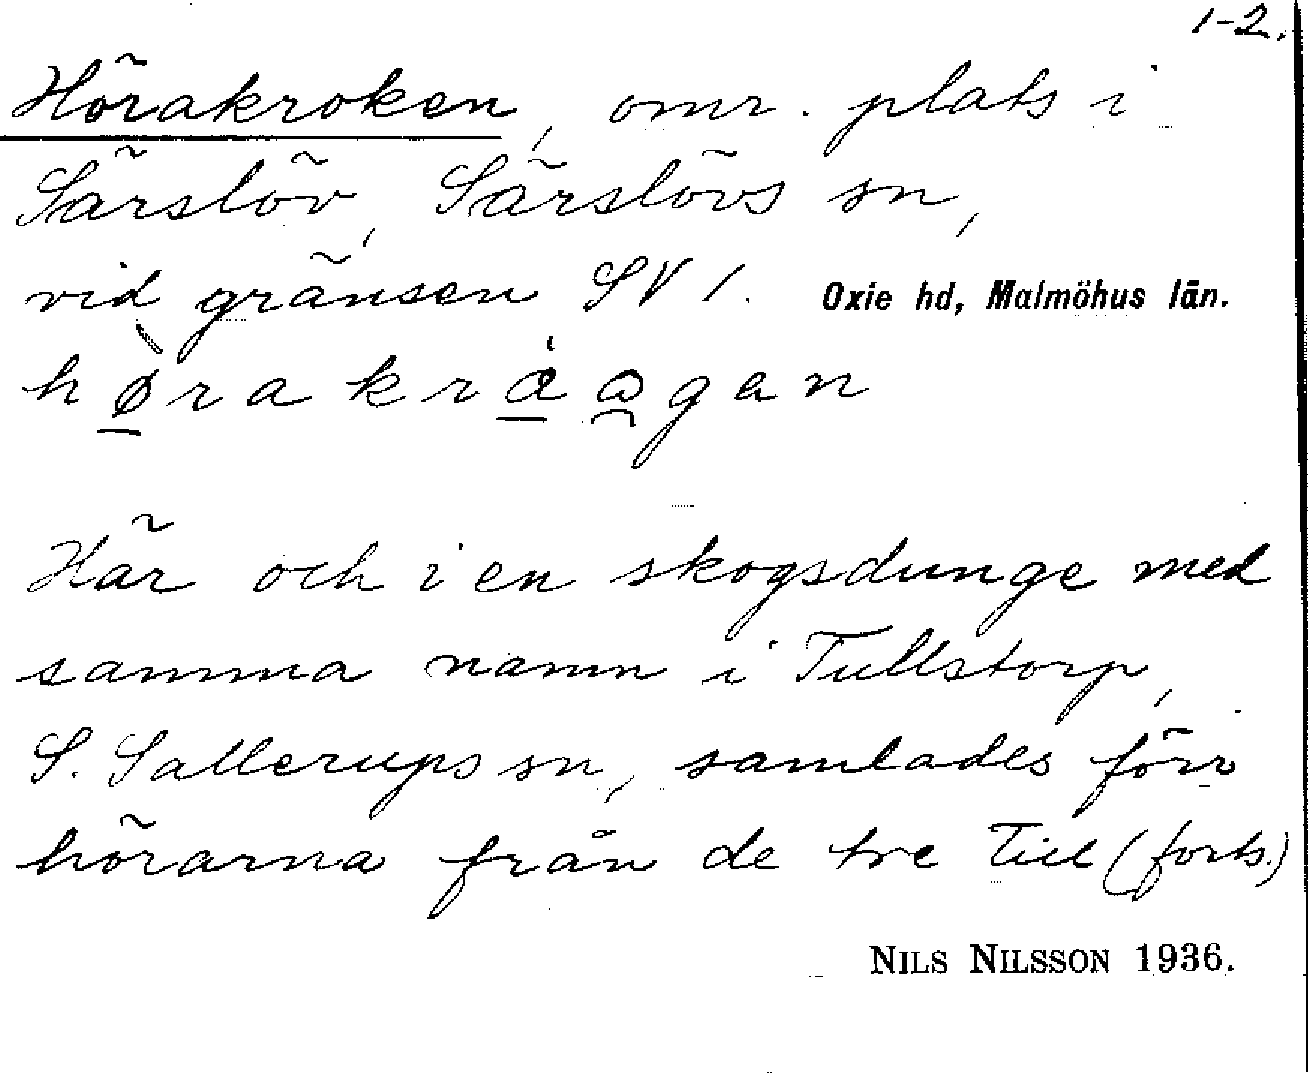 1-2.
Hörakroken, omr. plats i
Särslöv, Särslövs sn,
vid gränsen SV 1. Oxie hd, Malmöhus län.
hø̀rakrǻågan
Här och i en skogsdunge med
samma namn i Tullstorp,
S. Sallerups sn, samlades förr
hörarna från de tre (forts.)
NILS NILSSON 1936.